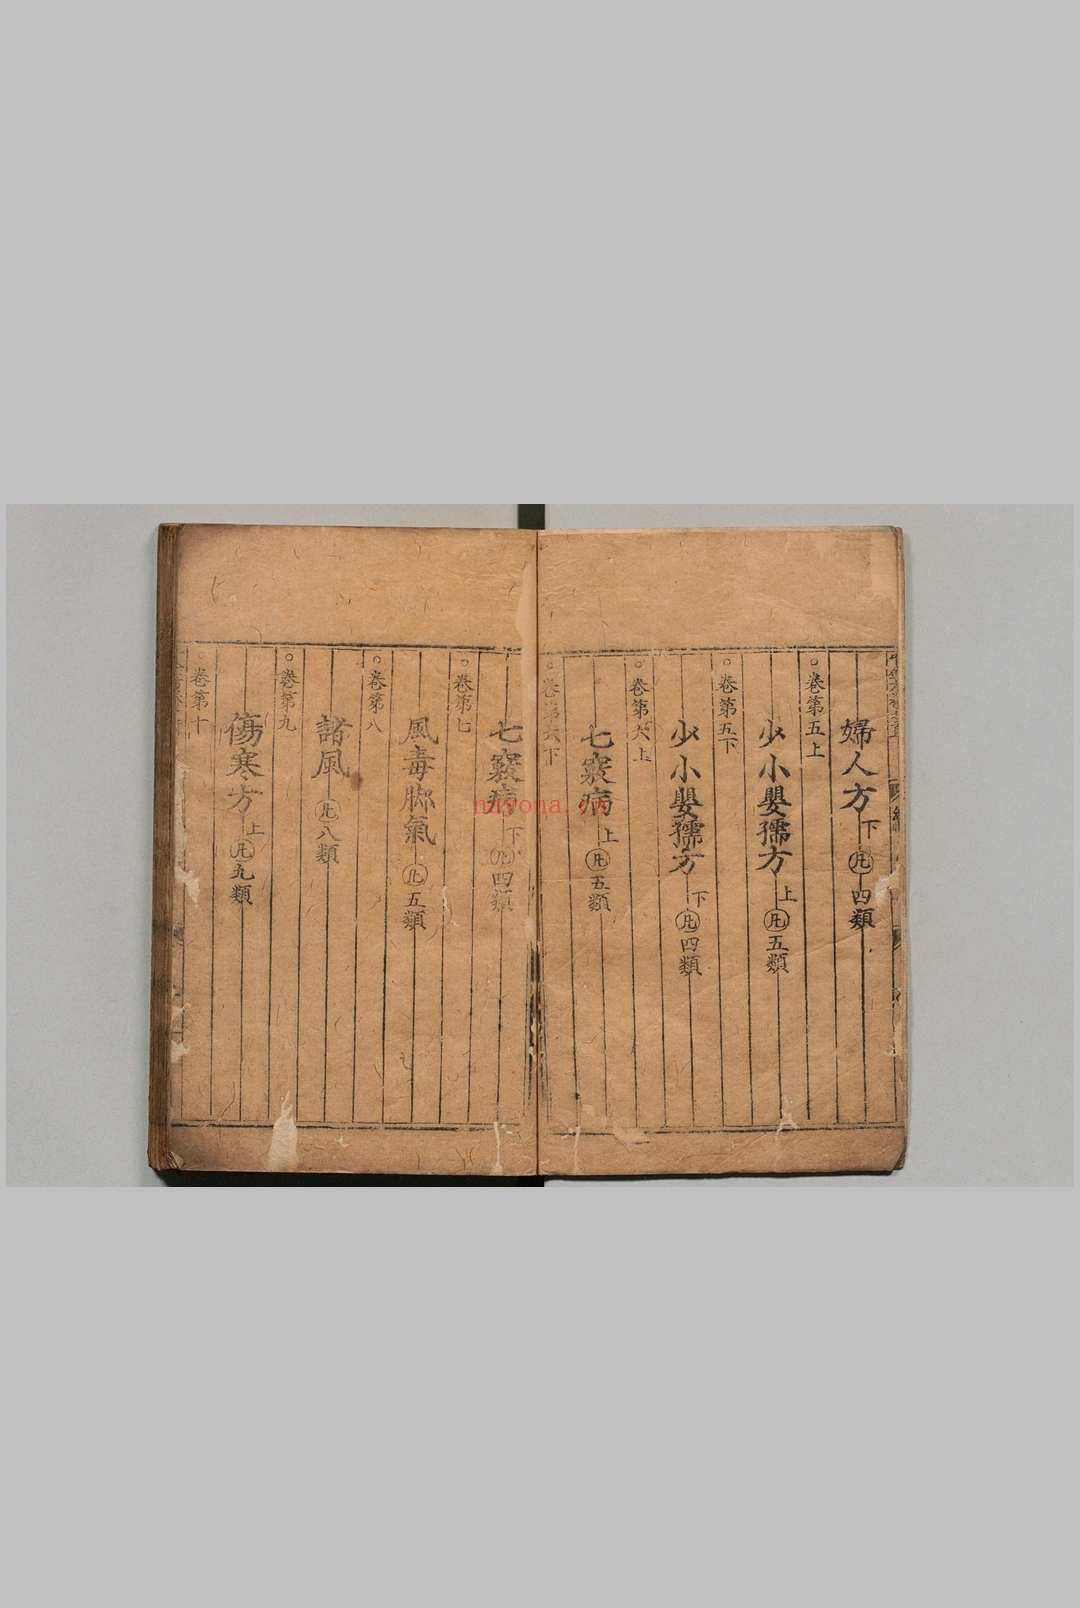 婦人方下凡四類
○卷第五上
少小嬰孺方上凡五類
○卷第五下
少小嬰孺方下凡四類
○卷第六上
七竅病上凡五類
○卷第六下
七竅病下凡四類
○卷第七
風毒脚氣凡五類
○卷第八
諸風凡八類
○卷第九
傷寒方上凡九類
○卷第十
nayona.cn